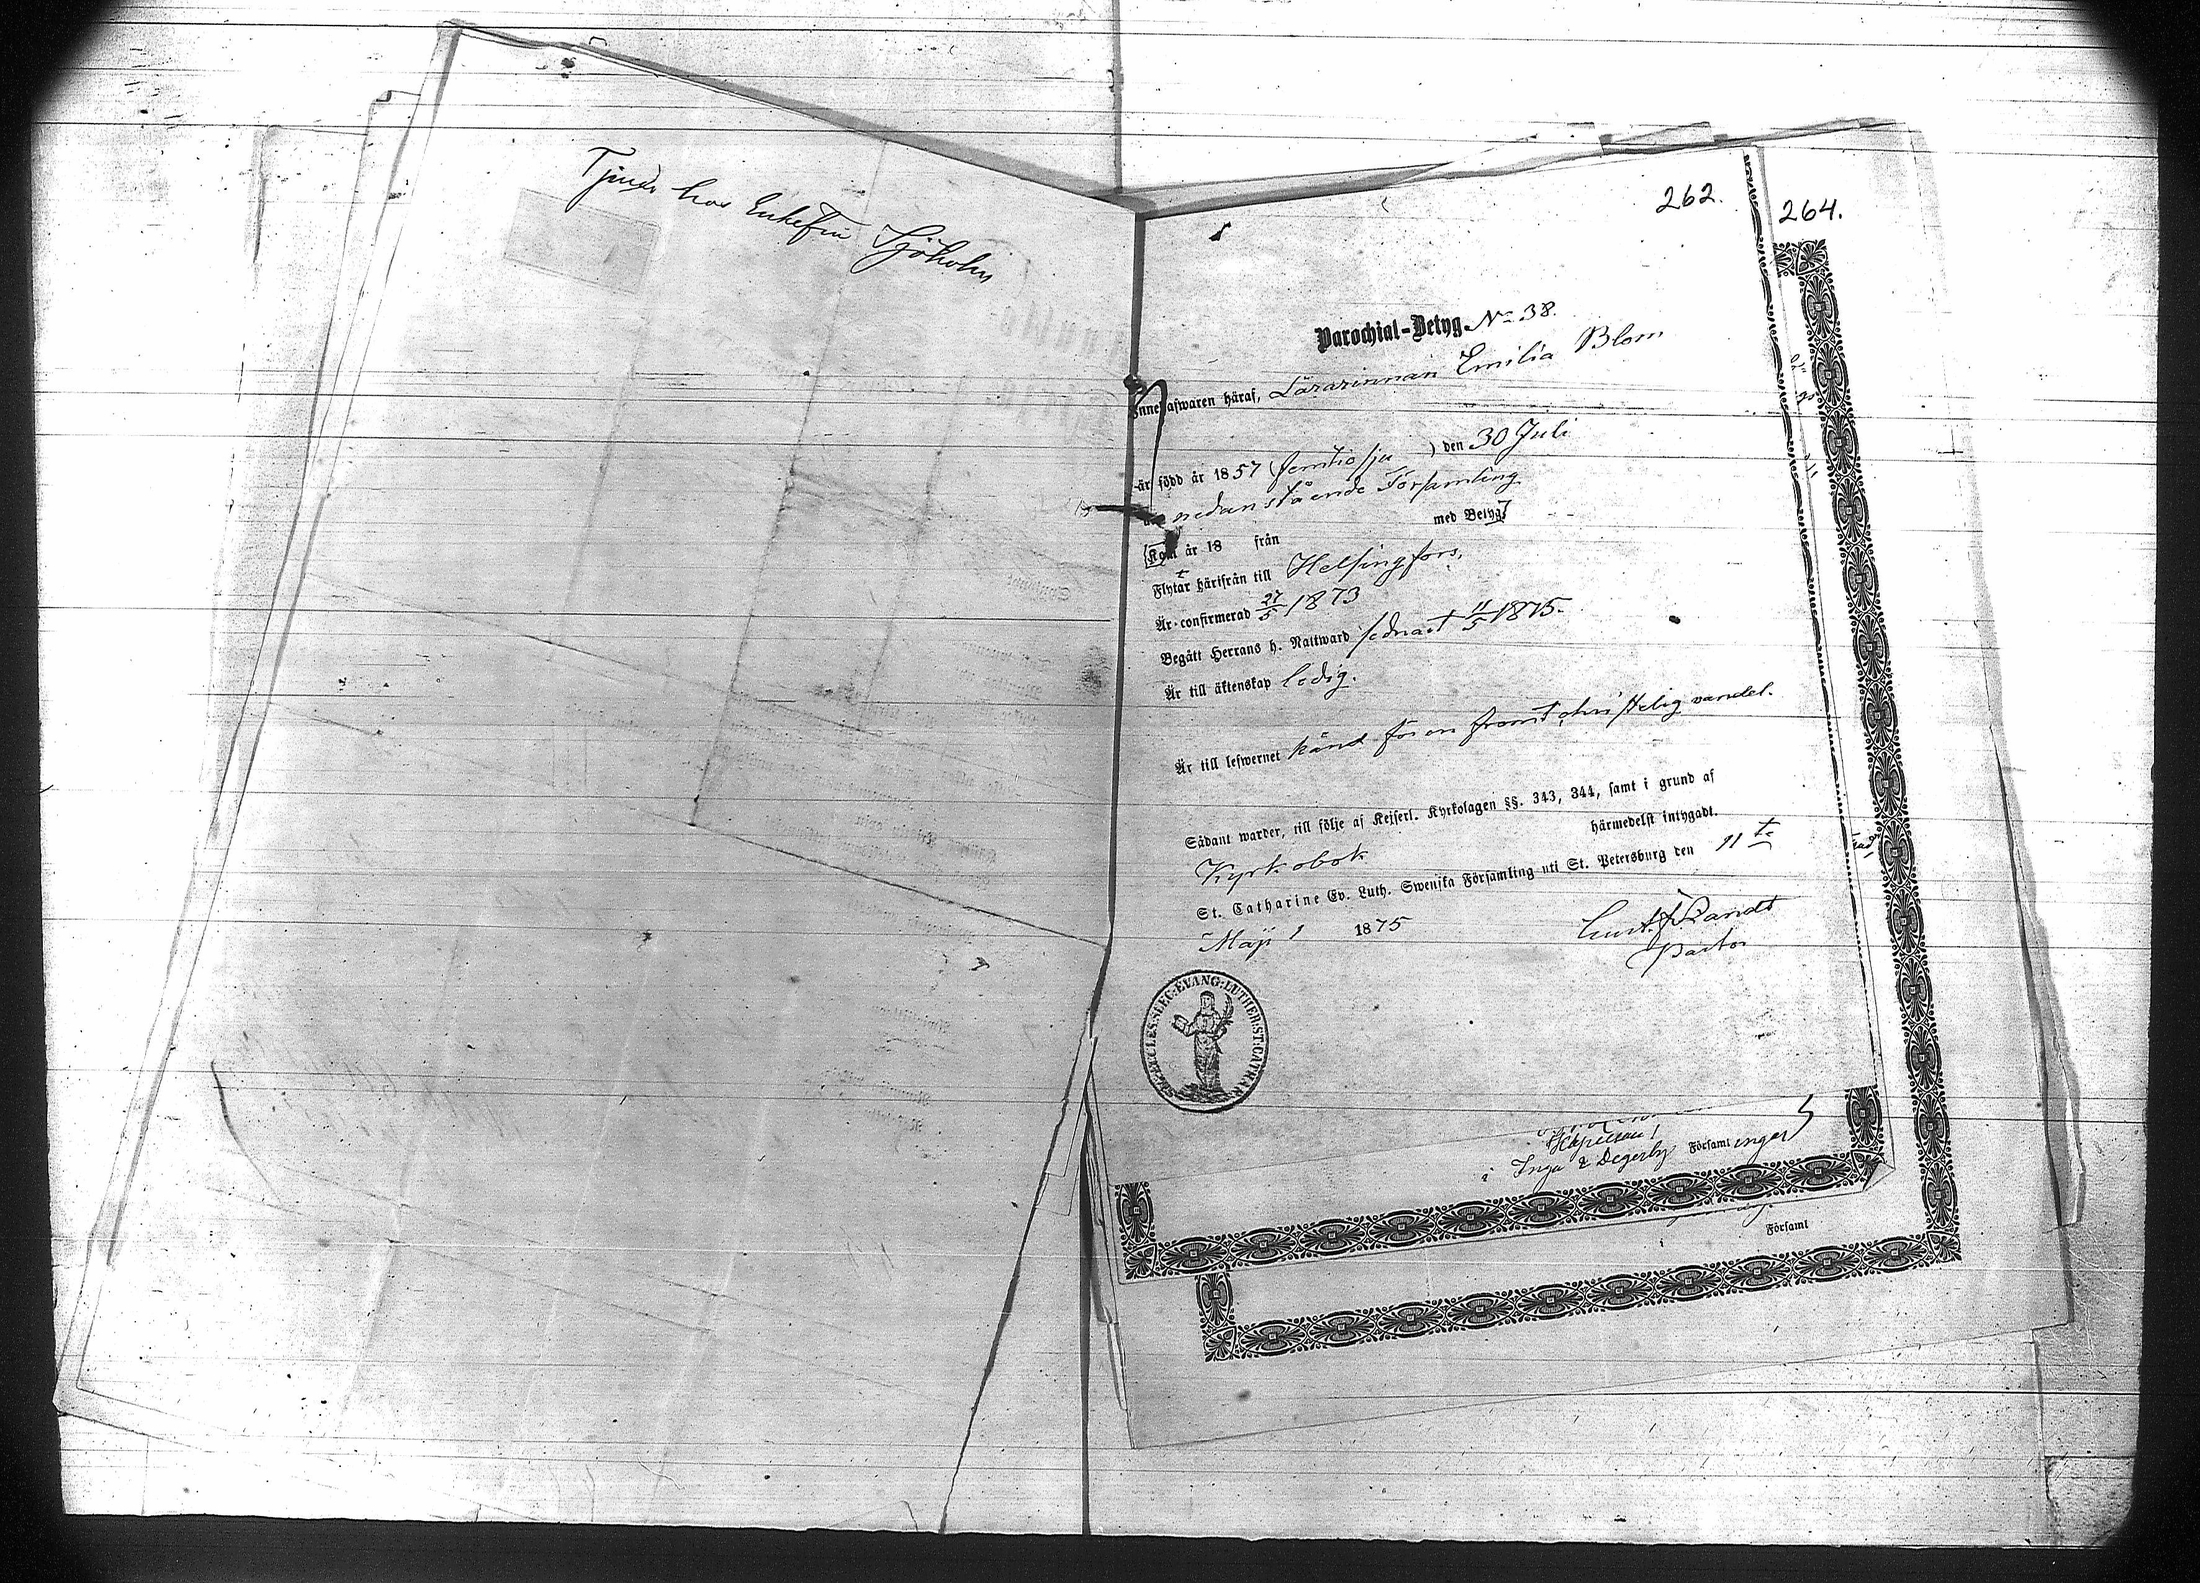 Tjenar hos Enkefru Sjöholm
262.
264.
Parochial-Betyg. No 38.
Innehafwaren häraf, Lärarinnan Emilia Blom
är född år 1857 (femtiosju ) den 30 Juli
nedanstående Församling
[Kom år 18 från med Betyg]
Flytar härifrån till Helsingfors.
Är confirmerad 27/5 1873
Begått Herrans h. Nattward sednast 11/5 1875.
Är till äktenskap ledig.
Är till lefwernet känd för en from, christelig vandel.
Sådant warder, till följe af Kejserl. Kyrkolagen §§. 343, 344, samt i grund af
Kyrkobok härmedelst intygadt.
St. Catharine Ev. Luth. Swenska Församling uti St. Petersburg den 11te
Maji 1875
Pastor
SIG:ECCLES:SUEC:EVANG:LUTHER:ST:CATHAR
i Inga & Degerby Församlingar
i Församl